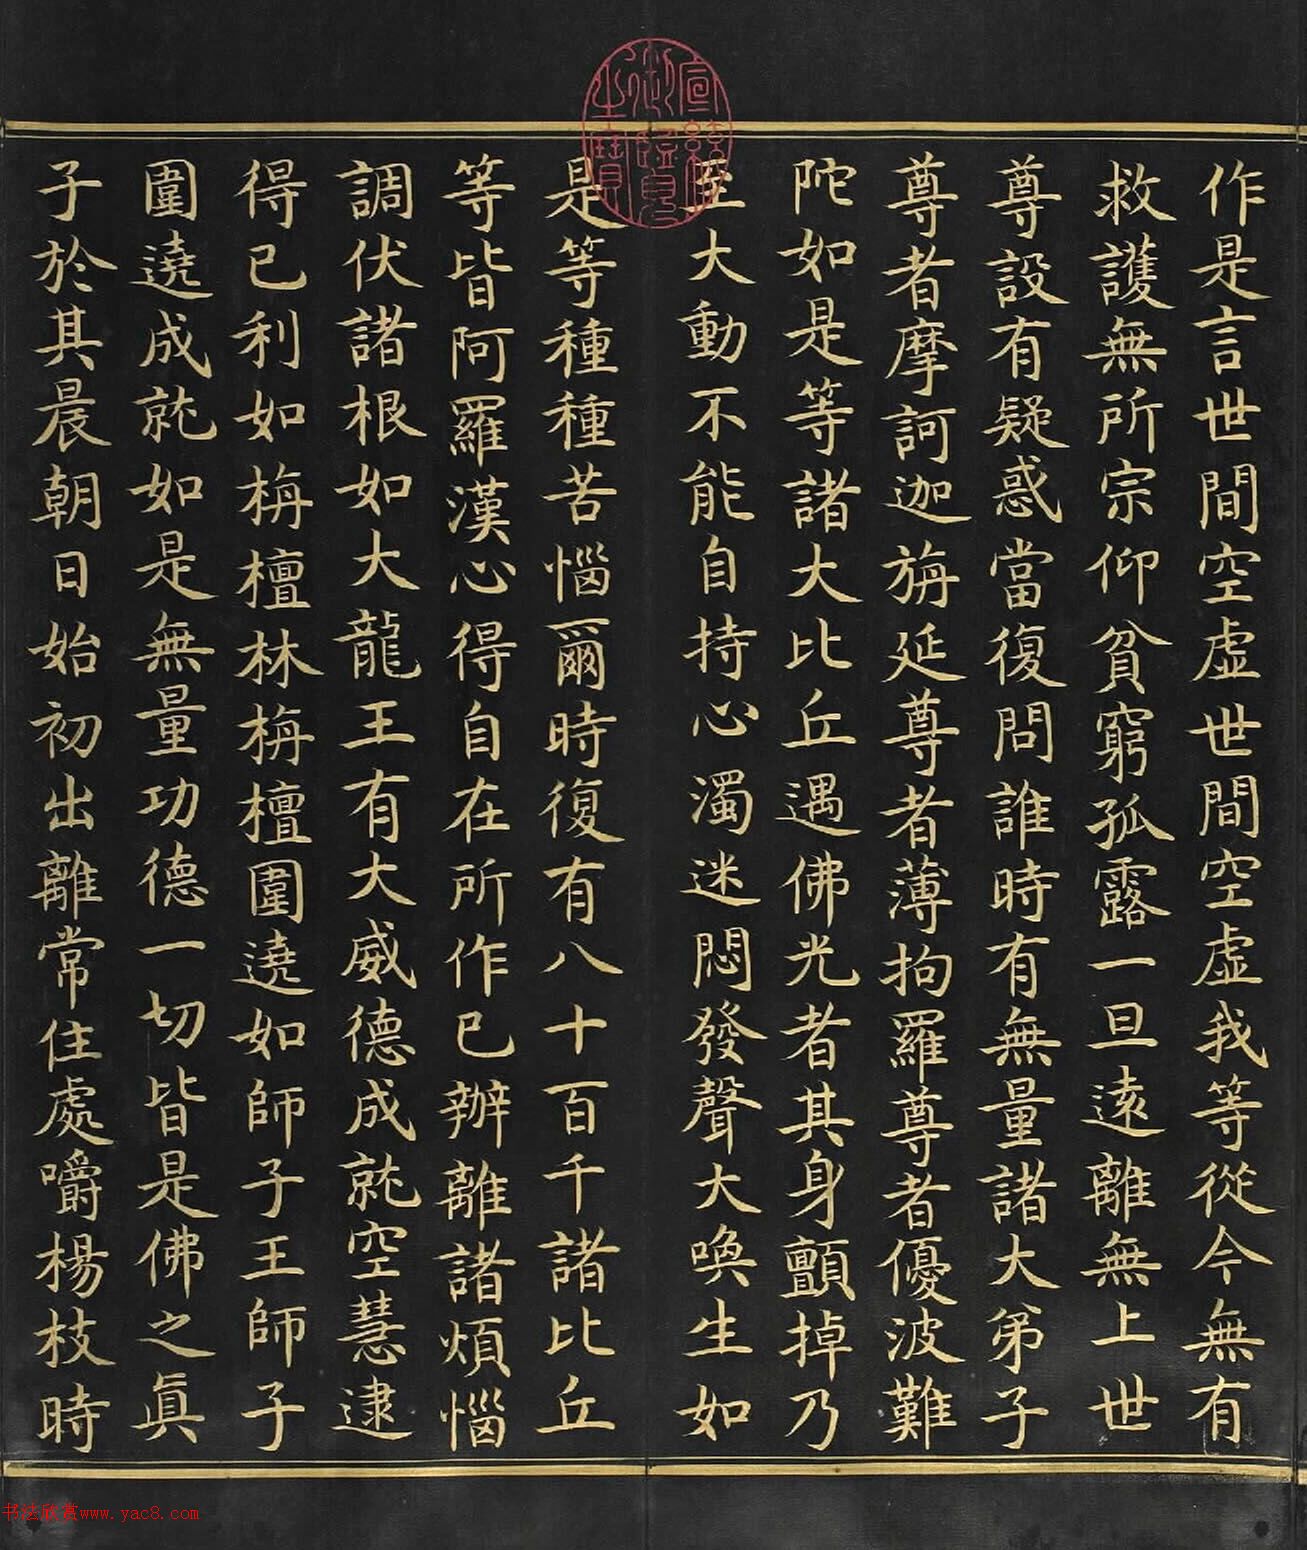 作是言世間空虛世間空虛我等從今無有
救護無所宗仰貧窮孤露一旦遠離無上世
尊設有疑惑當復問誰時有無量諸大弟子
尊者摩訶迦旃延尊者薄拘羅尊者優波難
陀如是等諸大比丘遇佛光者其身顫掉乃
至大動不能自持心濁迷悶發聲大喚生如
是等種種苦惱爾時復有八十百千諸比丘
等皆阿羅漢心得自在所作已辦離諸煩惱
調伏諸根如大龍王有大威德成就空慧逮
得已利如栴檀林栴檀圍遶如師子王師子
圍遶成就如是無量功德一切皆是佛之真
子於其晨朝日始初出離常住處嚼楊枝時
宣統御覽之寶
书法欣赏www.yac8.com